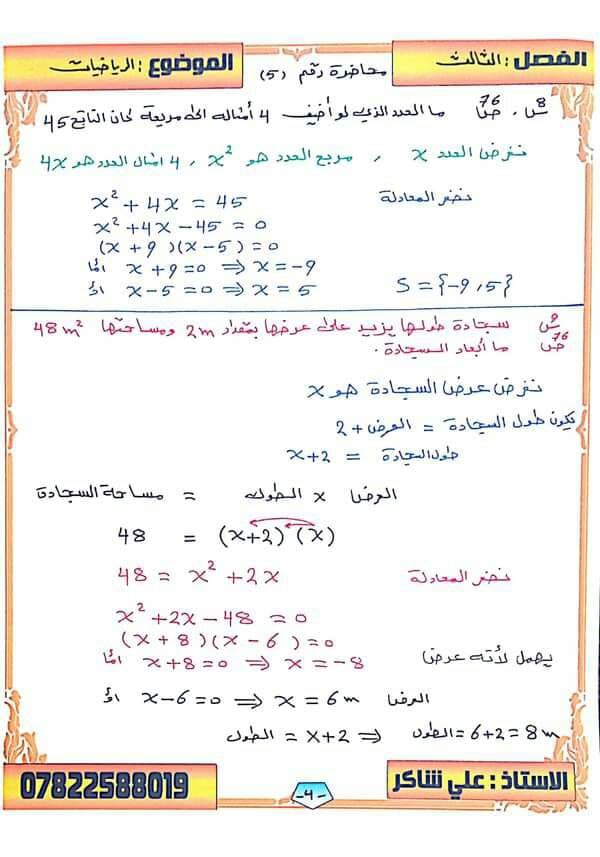 الفصل : الثالث
محاضرة رقم (5)
الموضوع : الرياضيات
س8 . ص76 ما العدد الذي لو أضيف 4 أمثاله الى مربعة لكان الناتج 45
نفرض العدد x ، مربع العدد هو x² ، 4 امثال العدد هو 4x
x² + 4x = 45
x² + 4x - 45 = 0
(x + 9)(x - 5) = 0
امّا x + 9 = 0 ⇒ x = -9
أو x - 5 = 0 ⇒ x = 5 S = {-9 , 5}
س ص76 سجادة طولها يزيد على عرضها بمقدار 2m ومساحتها 48 m²
ما أبعاد السجادة .
نفرض عرض السجادة هو x
يكون طول السجادة = العرض + 2
طول السجادة = x+2
مساحة السجادة = الطول x العرض
48 = (x+2) (x)
48 = x² + 2x
x² + 2x - 48 = 0
(x + 8)(x - 6) = 0
امّا x + 8 = 0 ⇒ x = -8 يهمل لأنه عرض
أو x - 6 = 0 ⇒ x = 6 m العرض
الطول = x + 2 ⇒ الطول = 6+2 = 8 m
الاستاذ : علي شاكر
-4-
07822588019